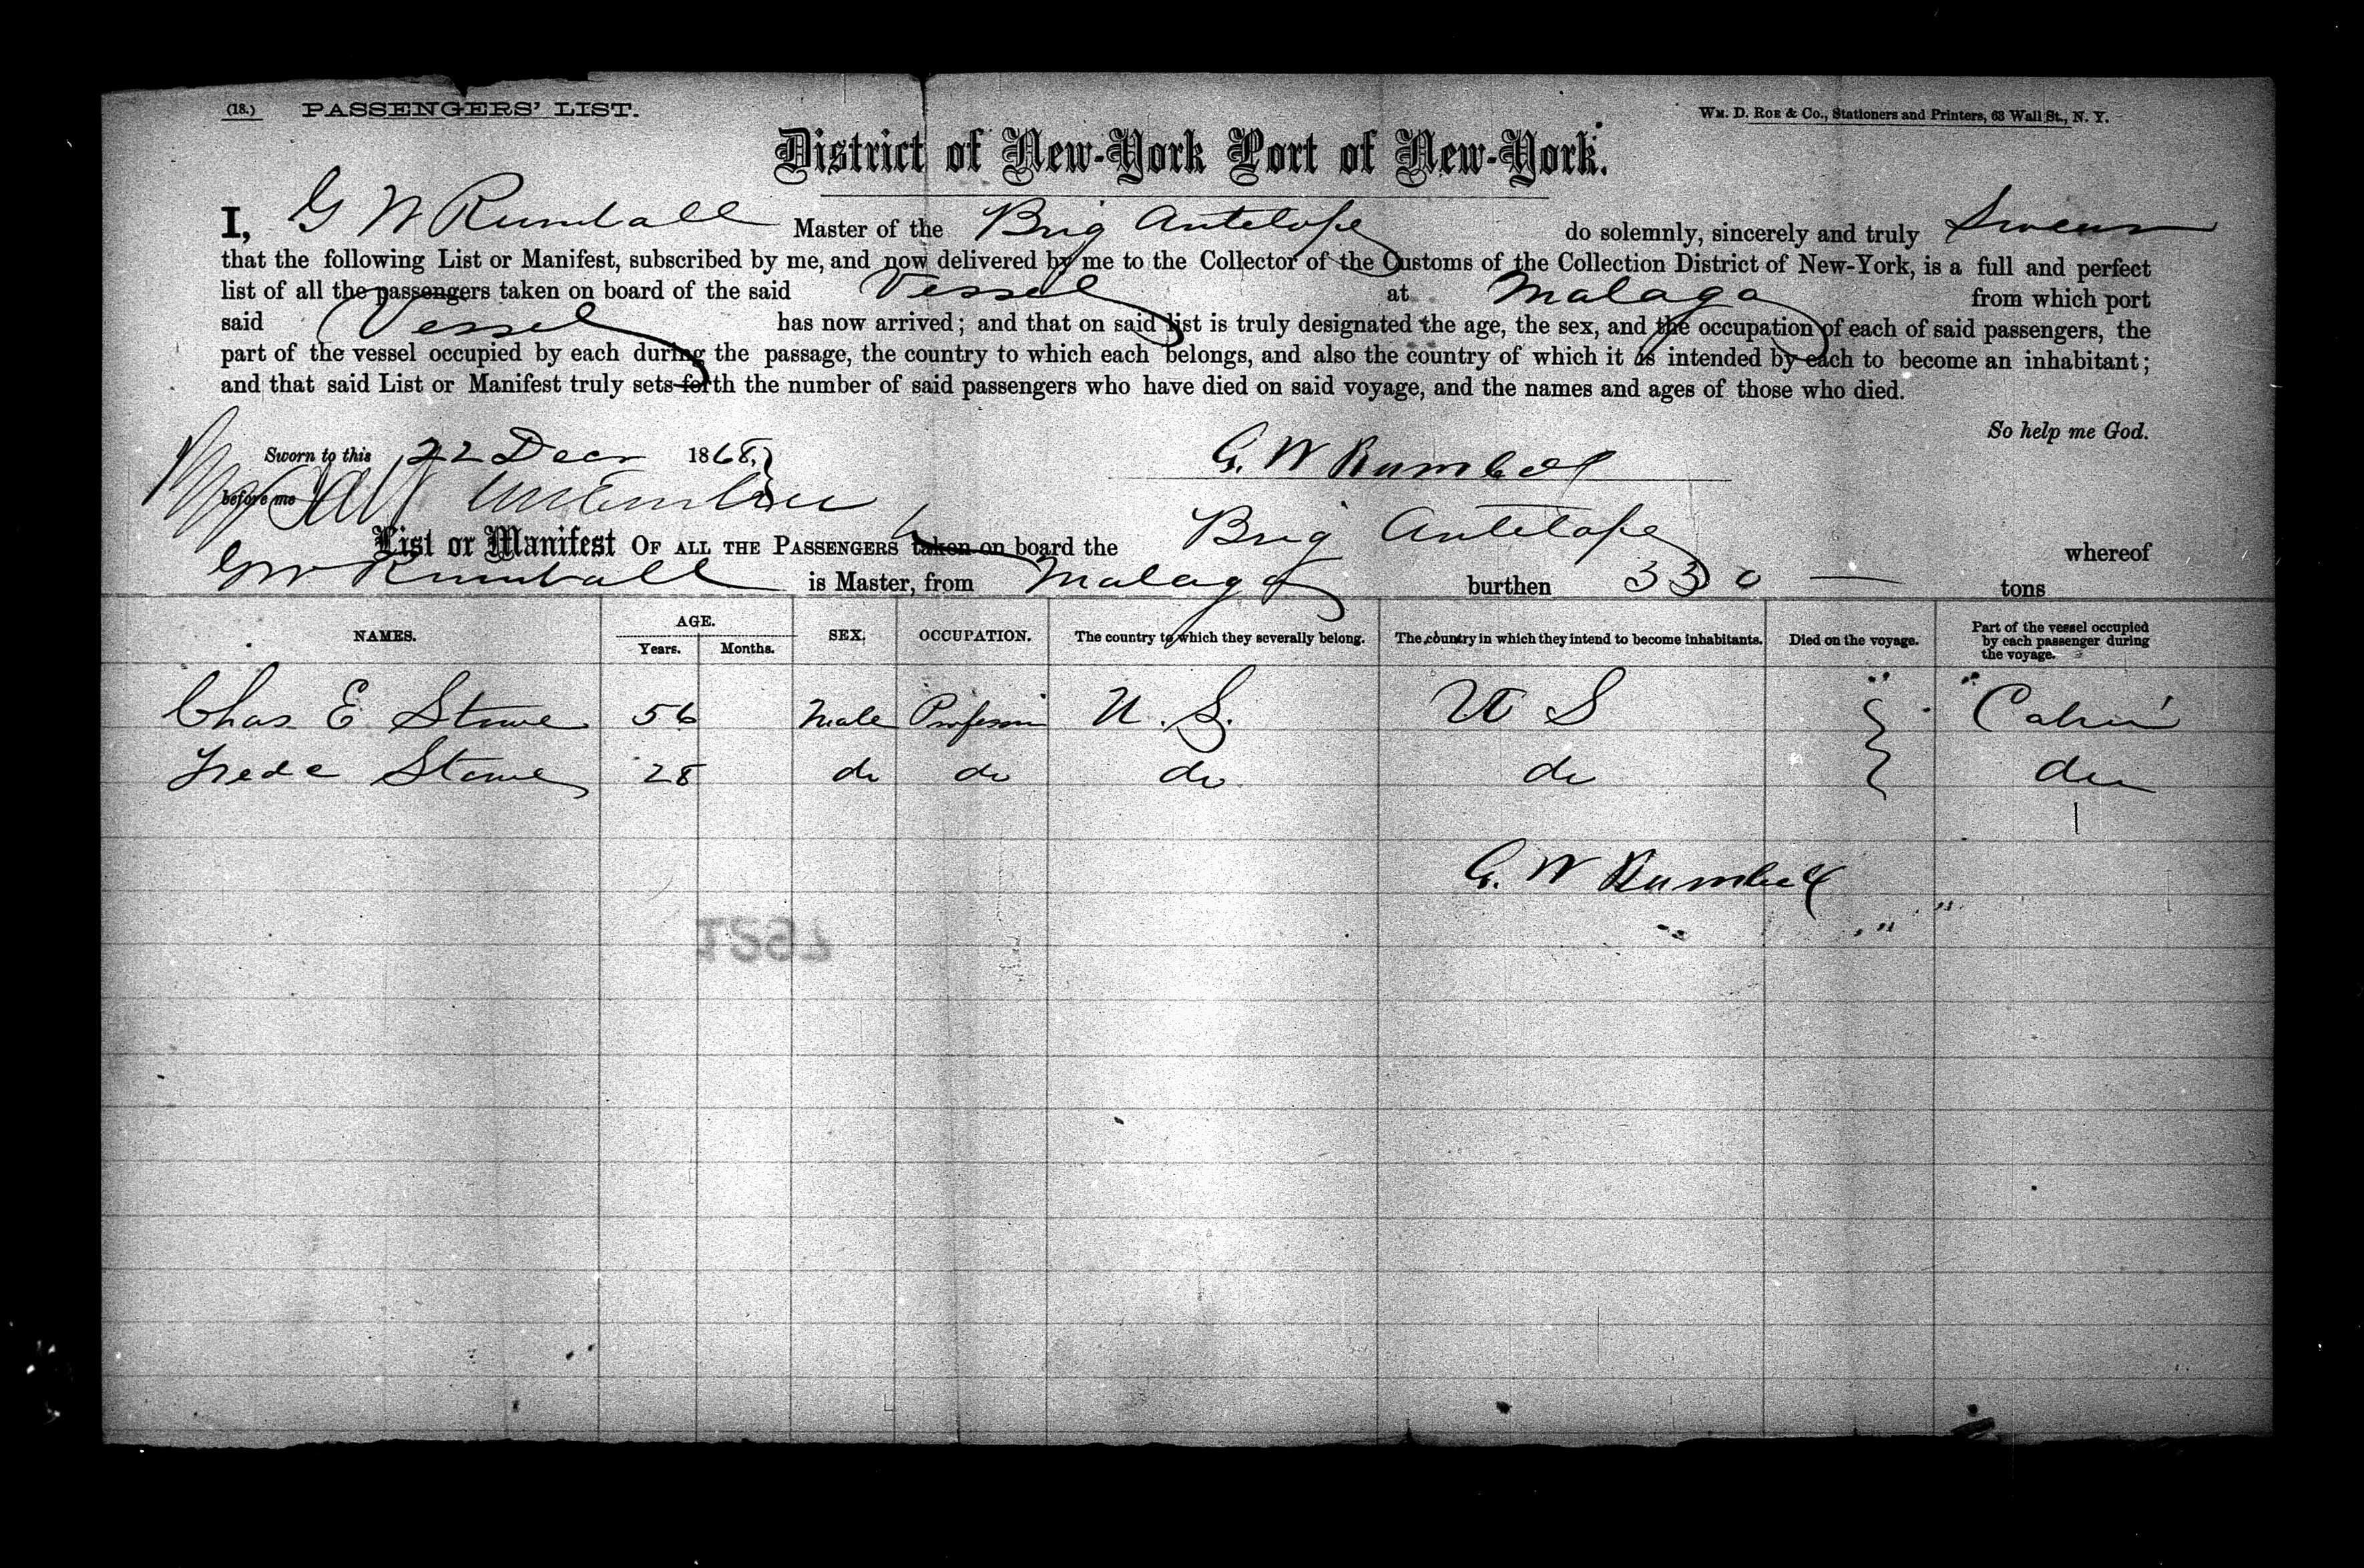 (18.) PASSENGERS' LIST.
Wm. D. Roe & Co., Stationers and Printers, 63 Wall St., N. Y.
District of New-York Port of New-York.
I, G W Rumball Master of the Brig Antelope do solemnly, sincerely and truly Swear
that the following List or Manifest, subscribed by me, and now delivered by me to the Collector of the Customs of the Collection District of New-York, is a full and perfect
list of all the passengers taken on board of the said Vessel at Malaga from which port
said Vessel has now arrived; and that on said list is truly designated the age, the sex, and the occupation of each of said passengers, the
part of the vessel occupied by each during the passage, the country to which each belongs, and also the country of which it is intended by each to become an inhabitant;
and that said List or Manifest truly sets forth the number of said passengers who have died on said voyage, and the names and ages of those who died.
So help me God.
Sworn to this 22 Decr 1868. G. W Rumball
before me
List or Manifest OF ALL THE PASSENGERS taken on board the Brig Antelope whereof
GW Rumball is Master, from Malaga burthen 330 tons
NAMES. AGE. Years. Months. SEX. OCCUPATION. The country to which they severally belong. The country in which they intend to become inhabitants. Died on the voyage. Part of the vessel occupied by each passenger during the voyage.
Chas E Stowe 56 Male Professor U. S. U S Cabin
Fredc Stowe 28 do do do do do
G. W Rumball
1621